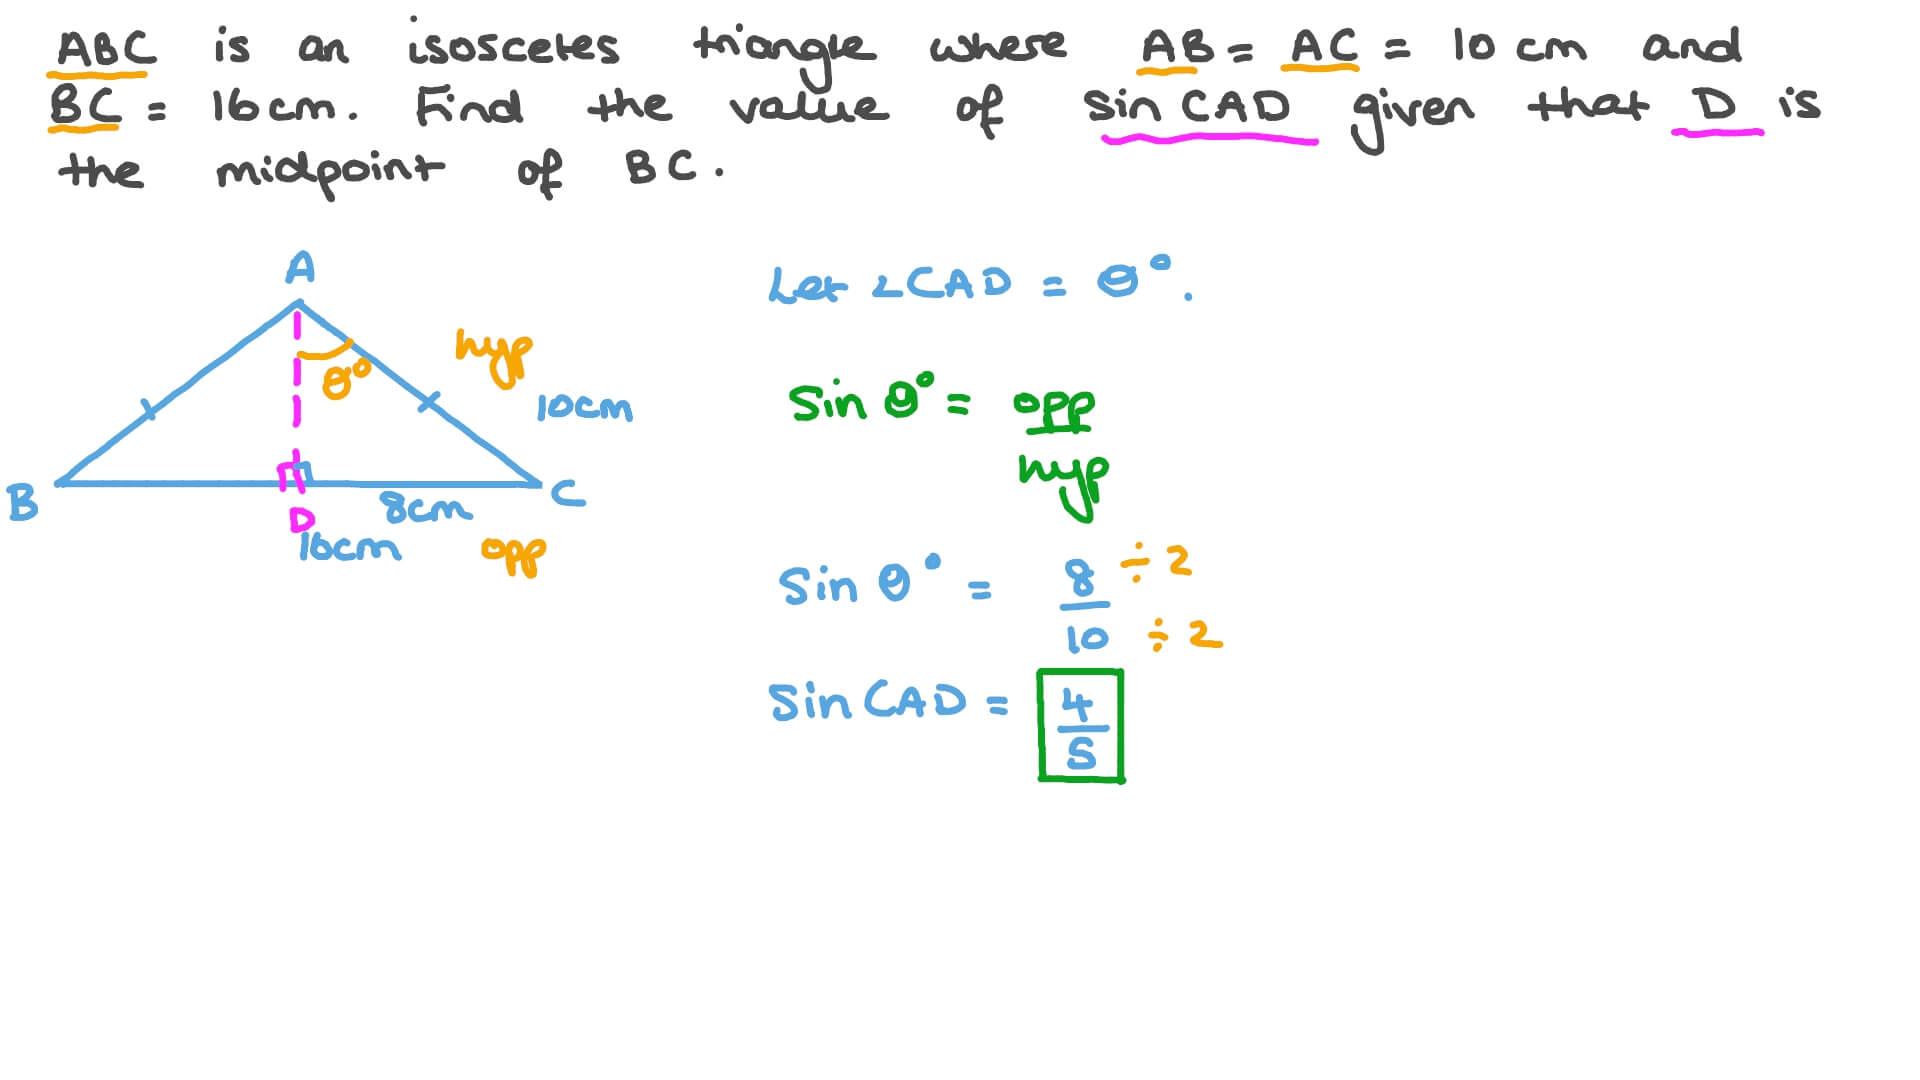 ABC is an isosceles triangle where AB = AC = 10 cm and
BC = 16cm. Find the value of sin CAD given that D is
the midpoint of BC.
A
hyp
θ°
10cm
B
C
D
8cm
16cm
opp
Let ∠CAD = θ°.
Sin θ° = opp
hyp
Sin θ° = 8 ÷ 2
10 ÷ 2
Sin CAD = 4
5